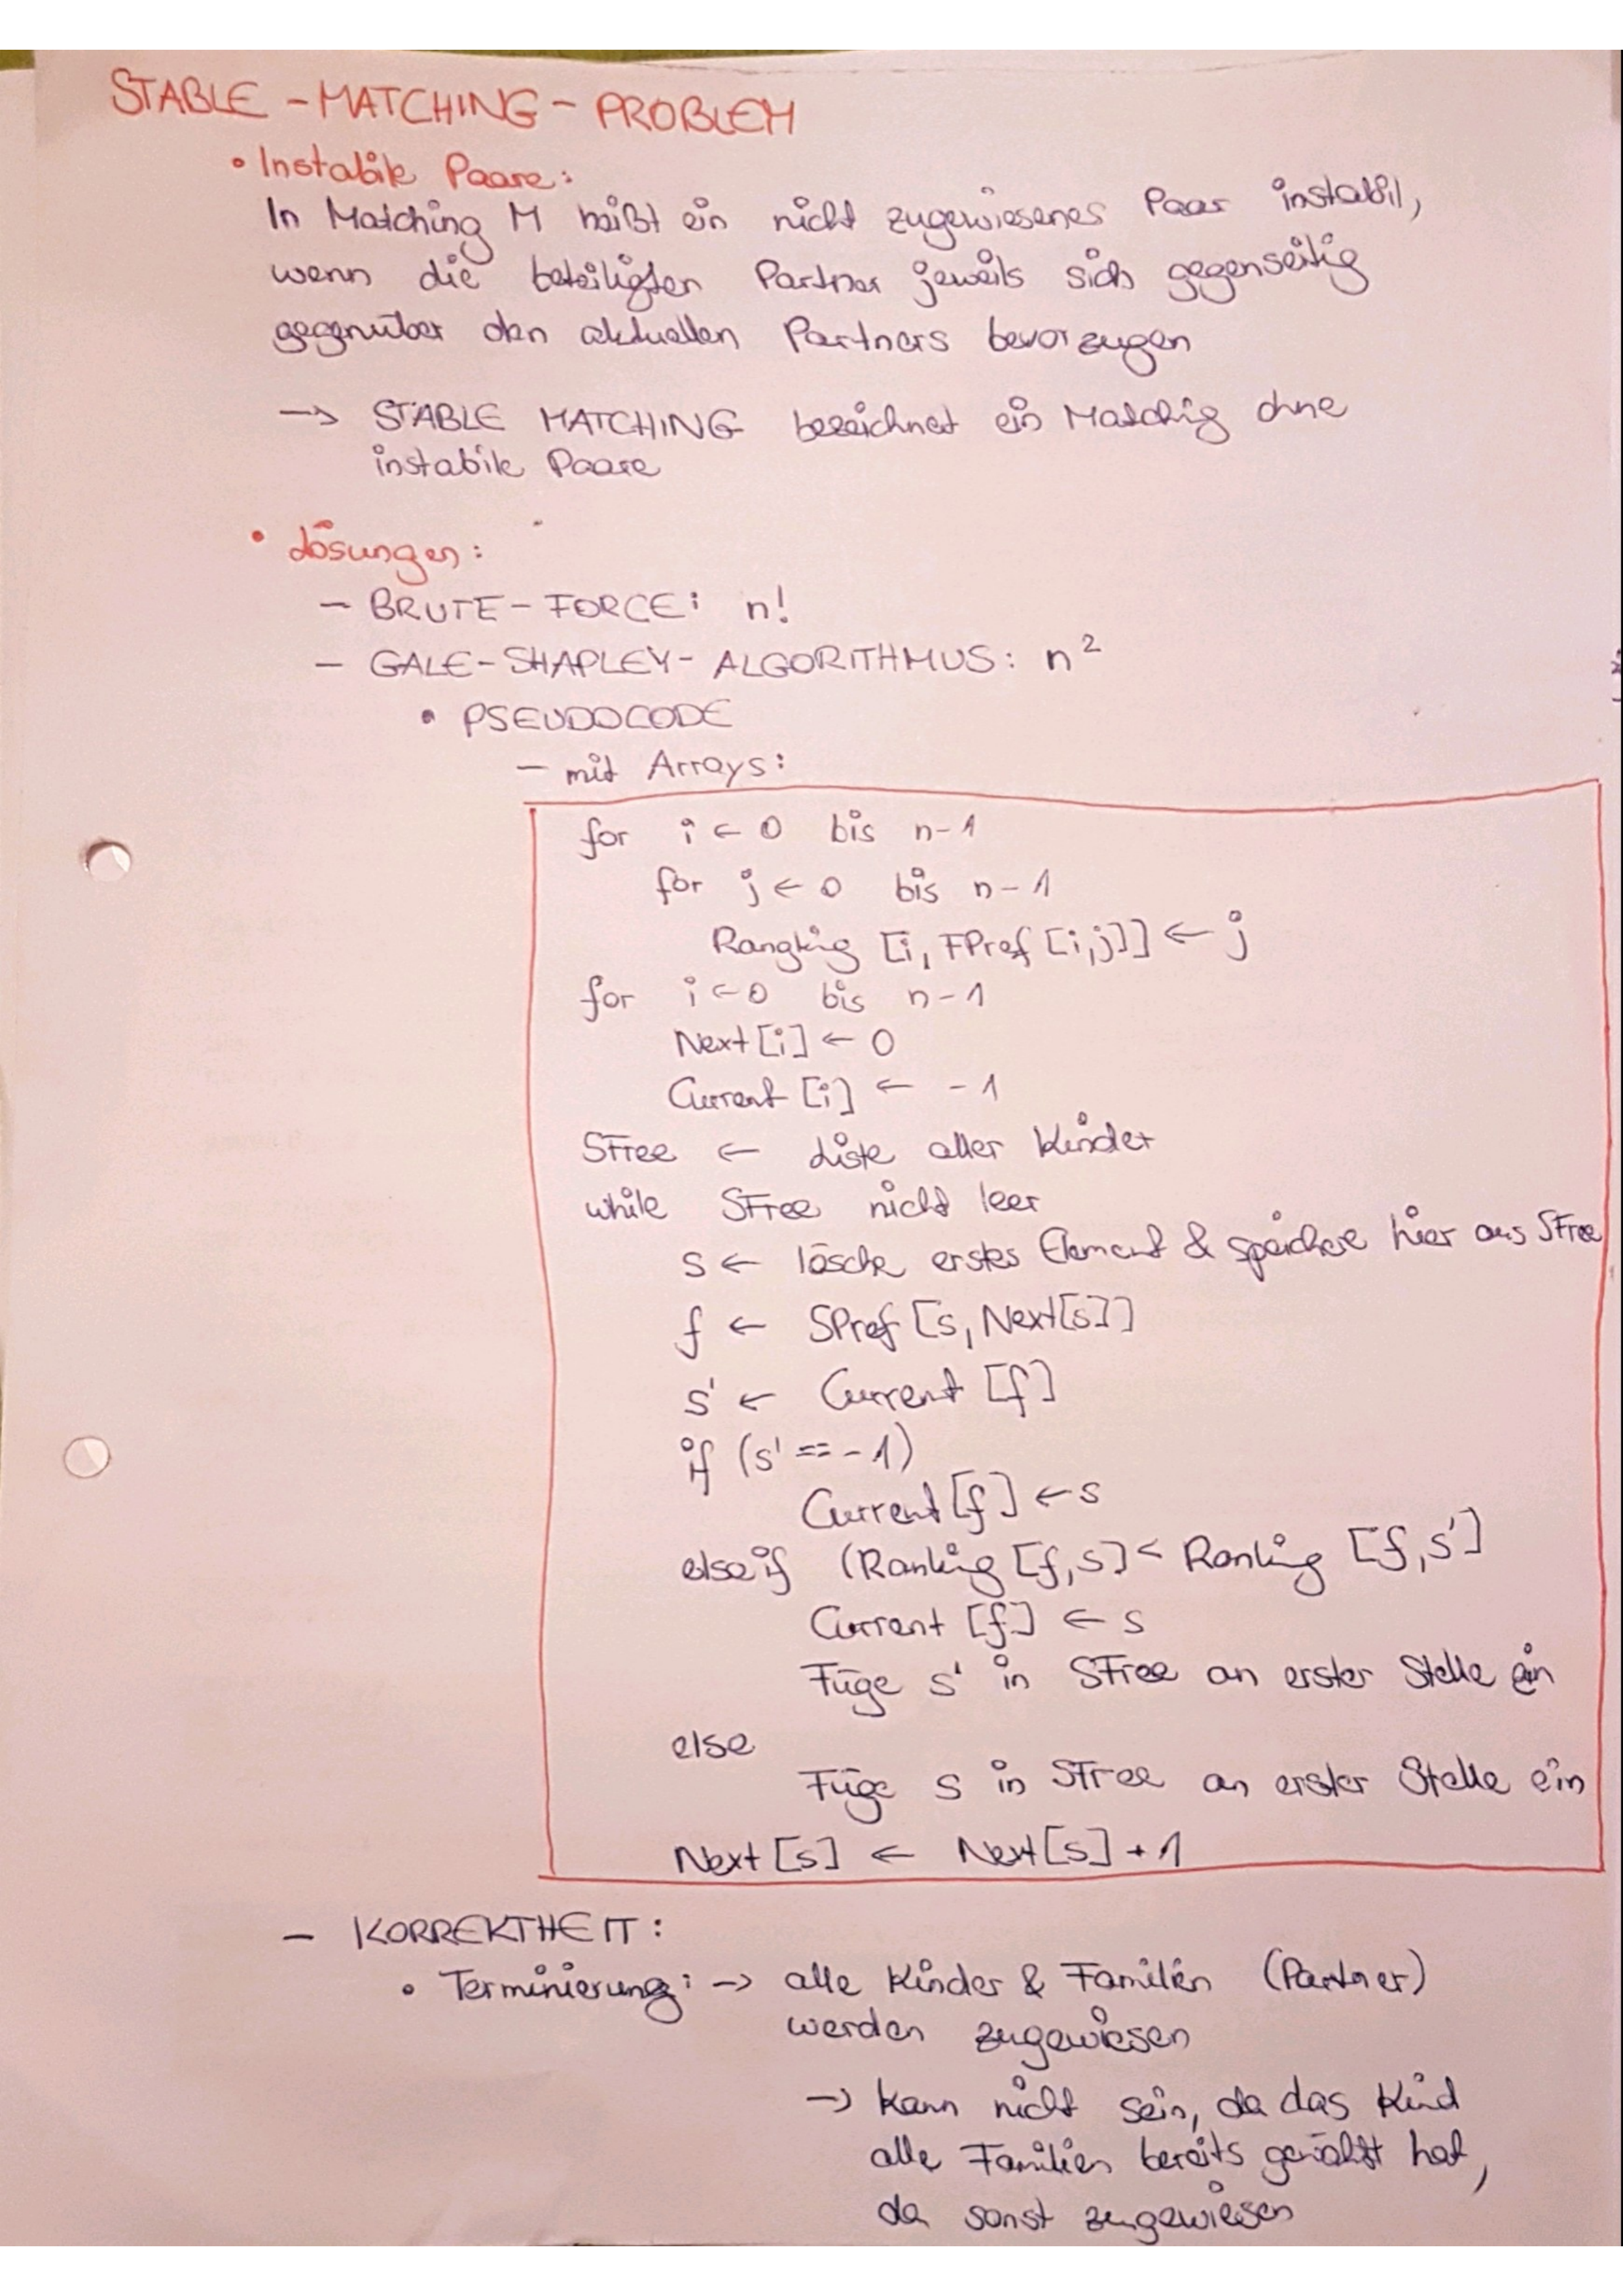 STABLE - MATCHING - PROBLEM
• Instabile Paare:
In Matching M heißt ein nicht zugewiesenes Paar instabil,
wenn die beteiligten Partner jeweils sich gegenseitig
gegenüber den aktuellen Partners bevorzugen
→ STABLE MATCHING bezeichnet ein Matchig ohne
instabile Paare
• Lösungen:
- BRUTE-FORCE: n!
- GALE-SHAPLEY-ALGORITHMUS: n²
• PSEUDOCODE
- mit Arrays:
for i ← 0 bis n-1
for j ← 0 bis n-1
Rangking [i, FPref [i,j]] ← j
for i ← 0 bis n-1
Next [i] ← 0
Current [i] ← -1
SFree ← Liste aller Kinder
while SFree nicht leer
s ← lösche erstes Element & speichere hier aus SFree
f ← SPref [s, Next[s]]
s' ← Current [f]
if (s' == -1)
Current [f] ← s
elseif (Ranking [f,s] < Ranking [f,s']
Current [f] ← s
Füge s' in SFree an erster Stelle ein
else
Füge s in SFree an erster Stelle ein
Next [s] ← Next[s] + 1
- KORREKTHEIT:
• Terminierung: → alle Kinder & Familien (Partner)
werden zugewiesen
→ kann nicht sein, da das Kind
alle Familien bereits gewählt hat,
da sonst zugewiesen